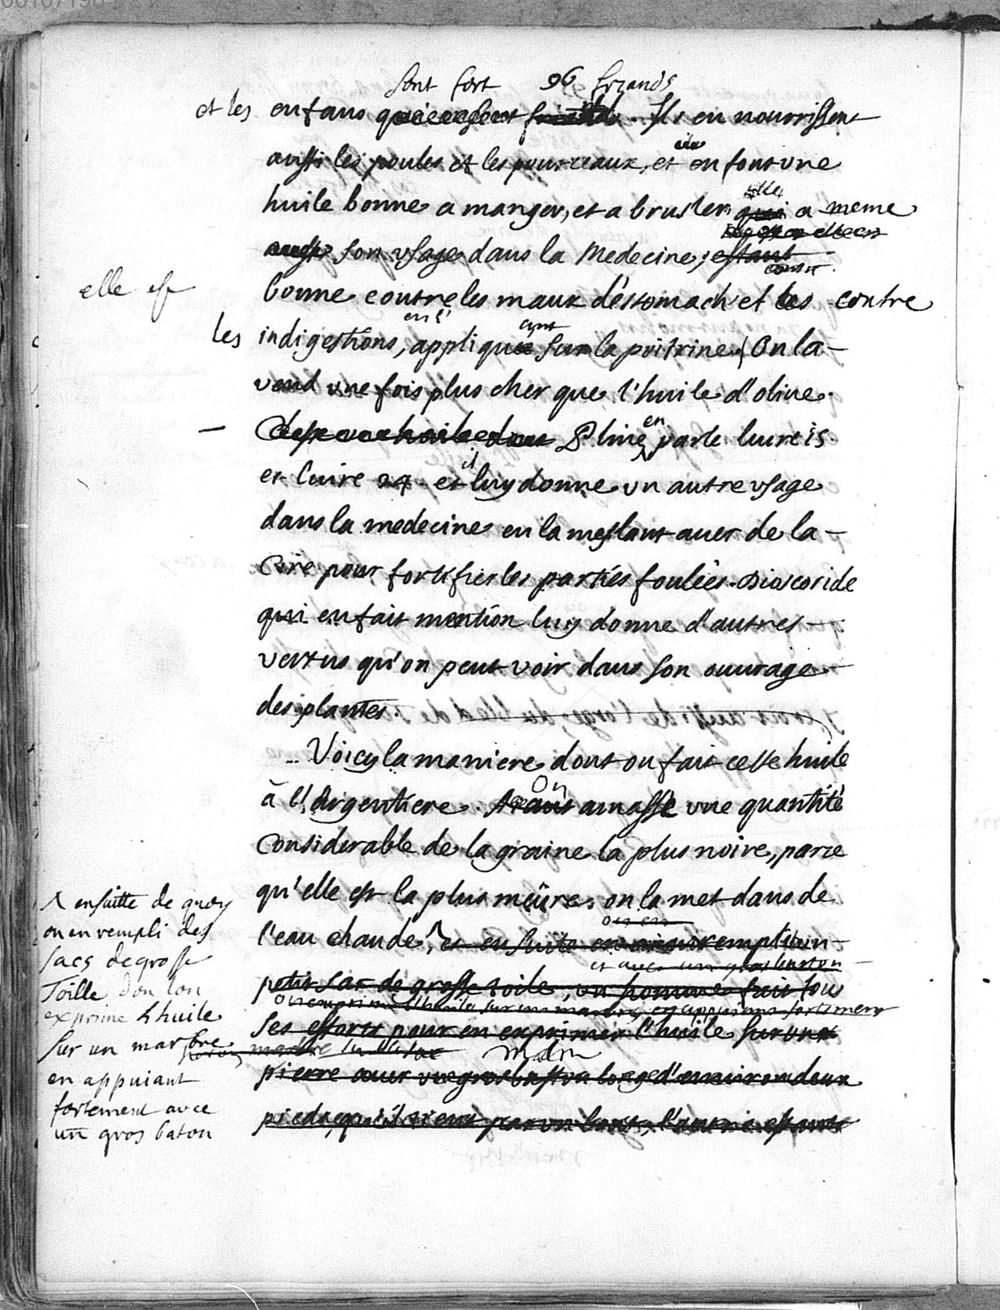 96
sont fort friands
et les enfans Ils en nourrissent
aussi les poules et les pourceaux, et en font une
huile bonne a manger, et a brusler, elle a meme
son usage dans la Medecine, estant
elle est bonne contre les maux d'estomach et contre
les indigestions, appliquée sur la poitrine. On la
vend une fois plus cher que l'huile d'olive.
Pline en parle livre 15.
et livre 24. et il luy donne un autre usage
dans la medecine en la meslant avec de la
Cire pour fortifier les parties foulées. Dioscoride
qui en fait mention luy donne d'autres
vertus qu'on peut voir dans son ouvrage
des plantes.
Voicy la maniere dont on fait cette huile
à l'Argentiere. On amasse une quantité
Considerable de la graine la plus noire, parce
qu'elle est la plus meûre, on la met dans de
l'eau chaude, et en suite
petit sac de grosse toile, un homme fait tous
ses efforts pour en exprimer l'huile sur une
pierre avec
ensuitte de quoy
on en rempli des
sacs de grosse
Toille, d'on l'on
exprime l'huile
sur un marbre
en appuiant
fortement avec
un gros baton